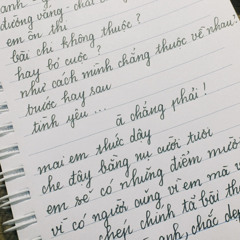 anh g
đường vắng chất c
em ôn thi
bài chi không thuộc?
hay bố cuộc?
như cách mình chẳng thuộc về nhau!
bước hay sau
tình yêu ... ã chẳng phải!
mai em thức dậy
che đậy bằng nụ cười tươi
em sẽ có những điểm mười
vì có người cũng vì em mà v
chép chính tả bài th
anh, chắc đẹp